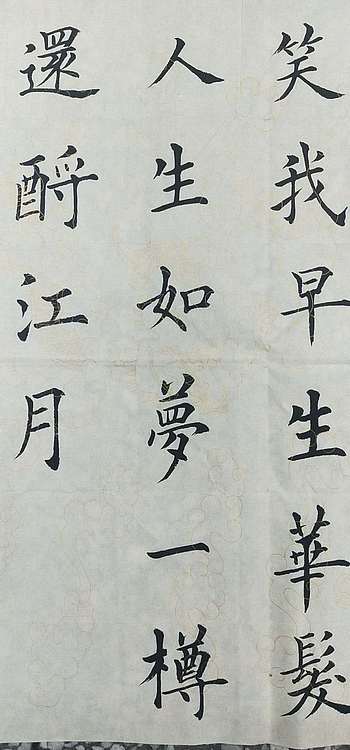 笑我早生華髮
人生如夢一樽
還酹江月